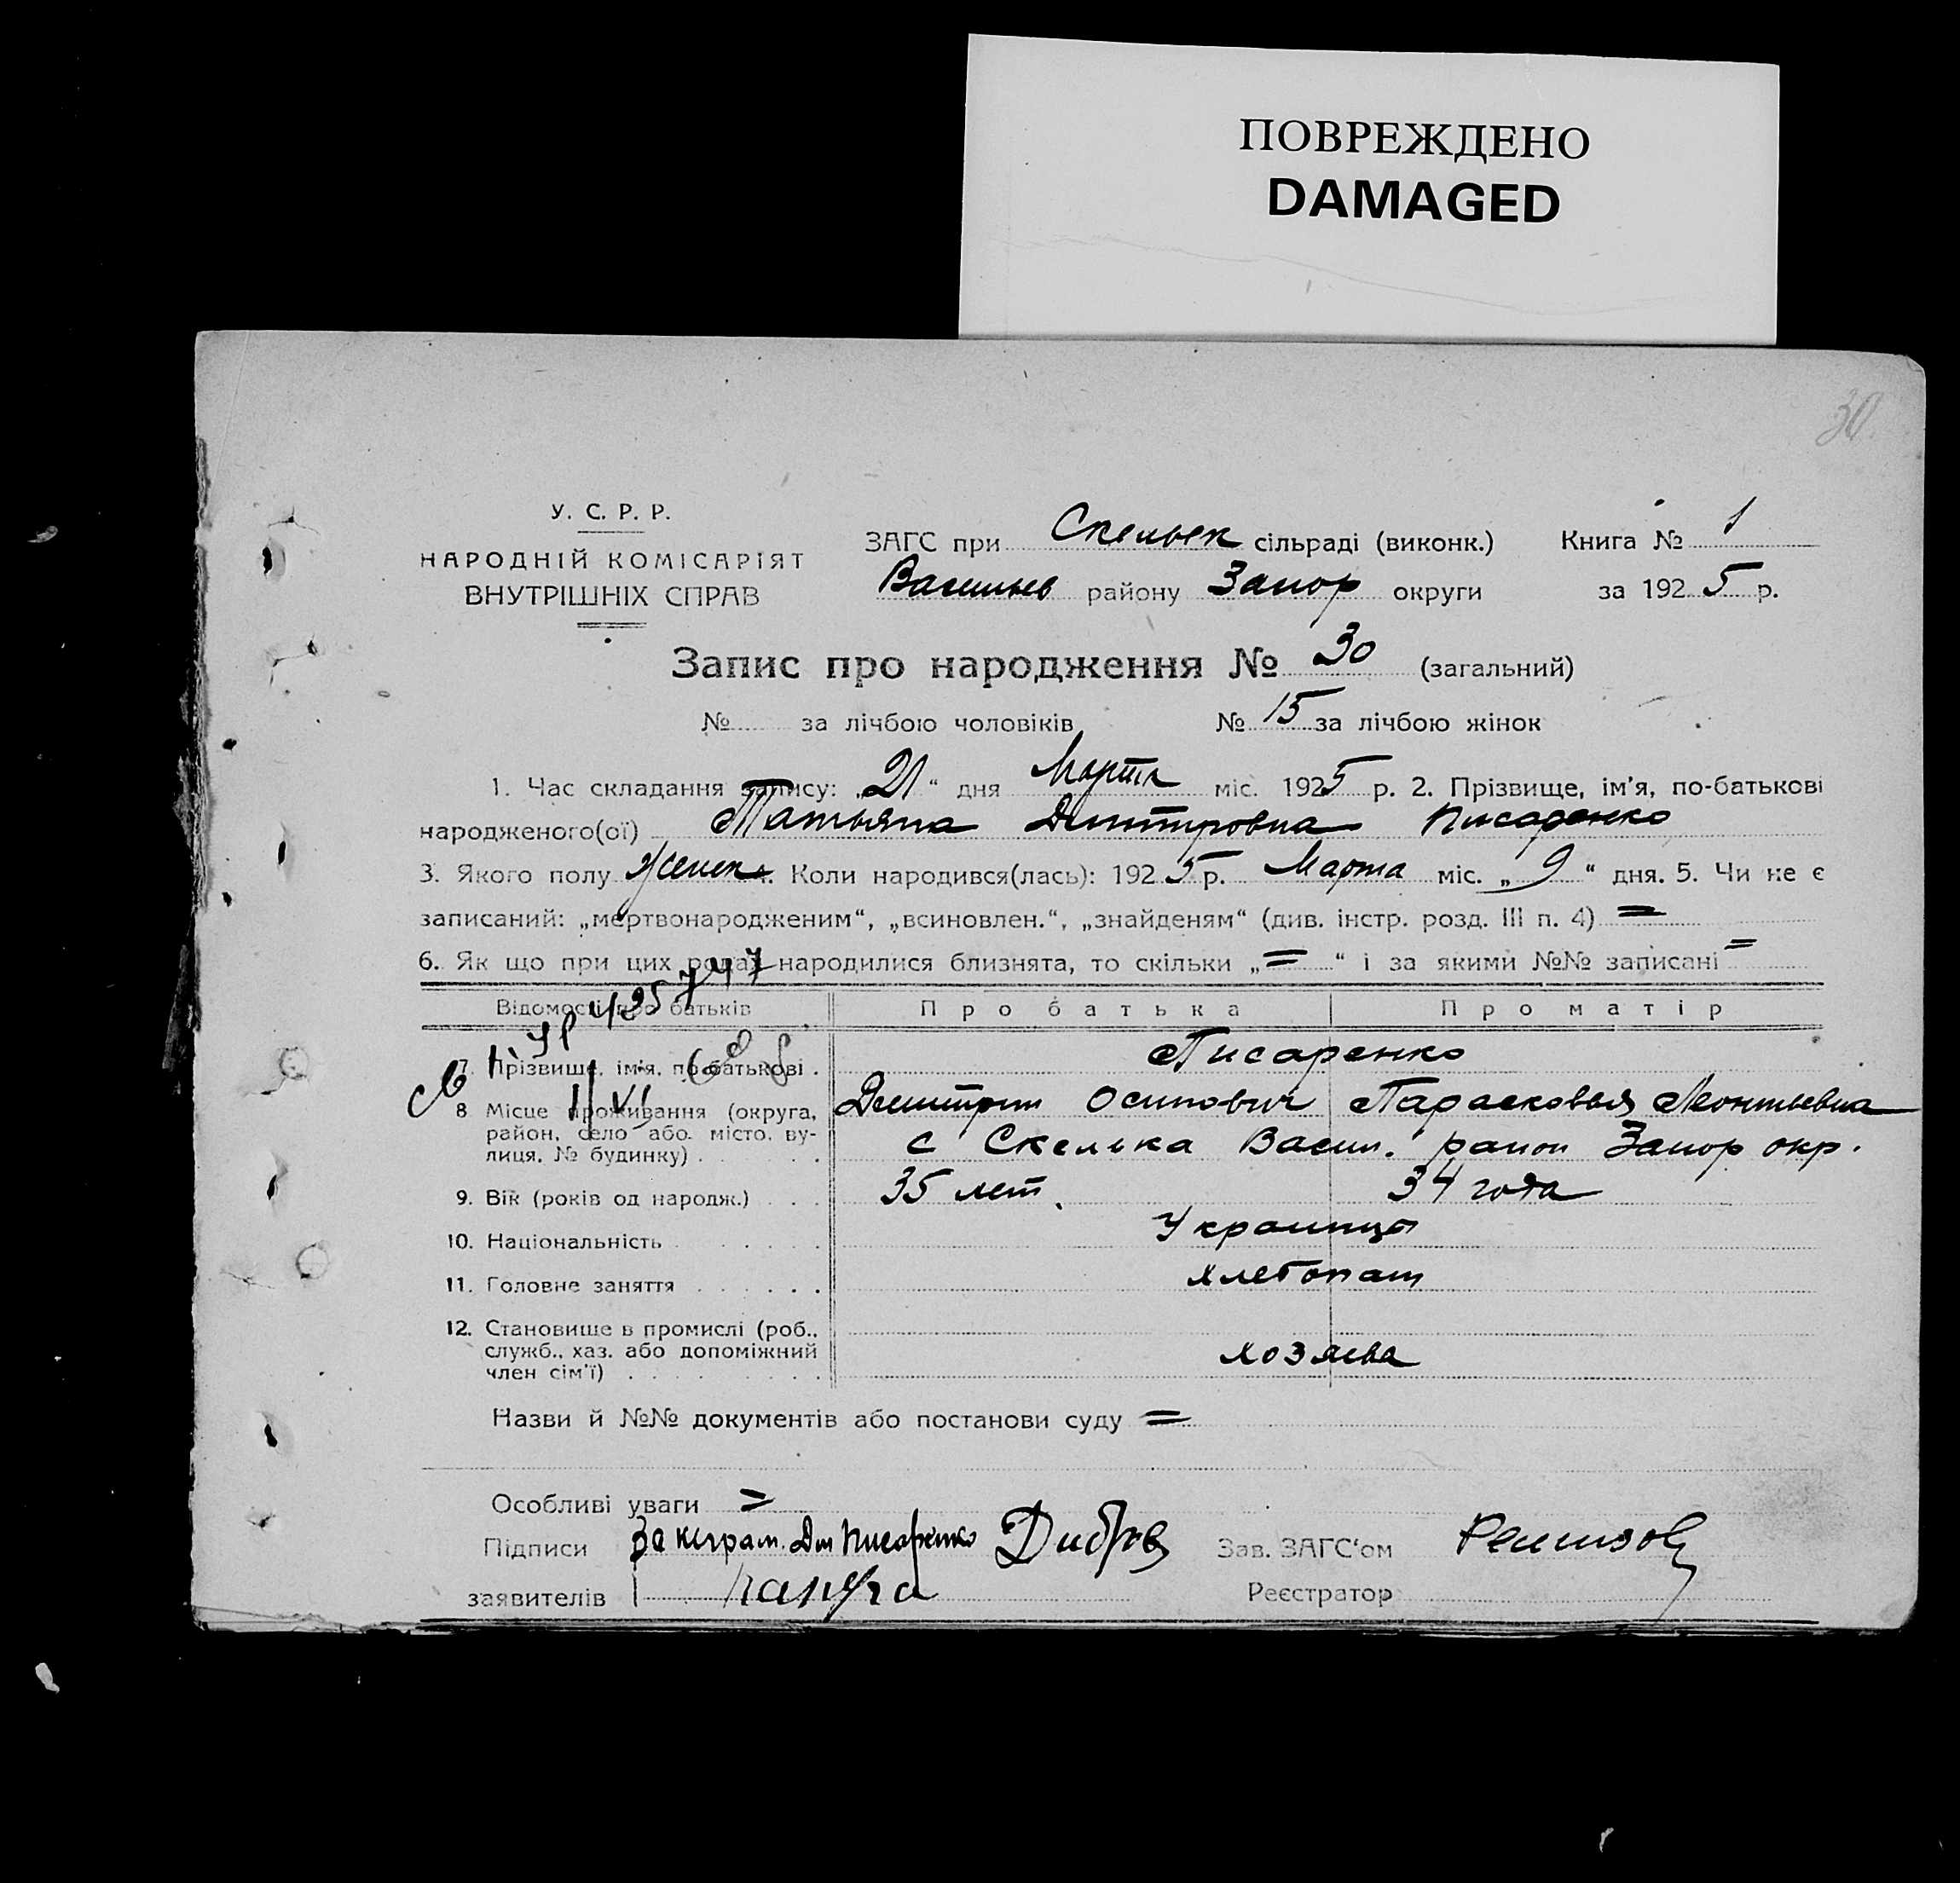 ПОВРЕЖДЕНО
DAMAGED
30
У. С. Р. Р.
НАРОДНІЙ КОМІСАРІЯТ
ВНУТРІШНІХ СПРАВ
ЗАГС при Скельек сільраді (виконк.) Книга № 1
Васильев району Запор округи за 1925 р.
Запис про народження № 30 (загальний)
№ за лічбою чоловіків № 15 за лічбою жінок
1. Час складання запису: „21“ дня Марта міс. 1925 р. 2. Прізвище, ім'я, по-батькові
народженого(ої) Татьяна Дмитровна Писаренко
3. Якого полу женск 4. Коли народився(лась): 1925 р. Марта міс. „9“ дня. 5. Чи не є
записаний: „мертвонародженим“, „всиновлен.“, „знайденям“ (див. інстр. розд. III п. 4) =
6. Як що при цих родах народилися близнята, то скільки „=“ і за якими №№ записані =
Відомості про батьків Про батька Про матір
7. Прізвище, ім'я, по-батькові . Писаренко
Дмитрий Осипович Парасковья Леонтьевна
8 Місце проживання (округа,
район, село або місто, ву-
лиця, № будинку) . . . с Скелька Васил. район Запор окр.
9. Вік (років од народж.) . . . 35 лет. 34 года
10. Національність . . . . . Украинцы
11. Головне заняття . . . . . . хлебопаш
12. Становище в промислі (роб.,
служб., хаз. або допоміжний
член сім'ї) . . . . . . . . . хозяева
Назви й №№ документів або постанови суду =
Особливі уваги =
Підписи За неграм. Дм Писаренко Зав. ЗАГС'ом
заявителів Реєстратор